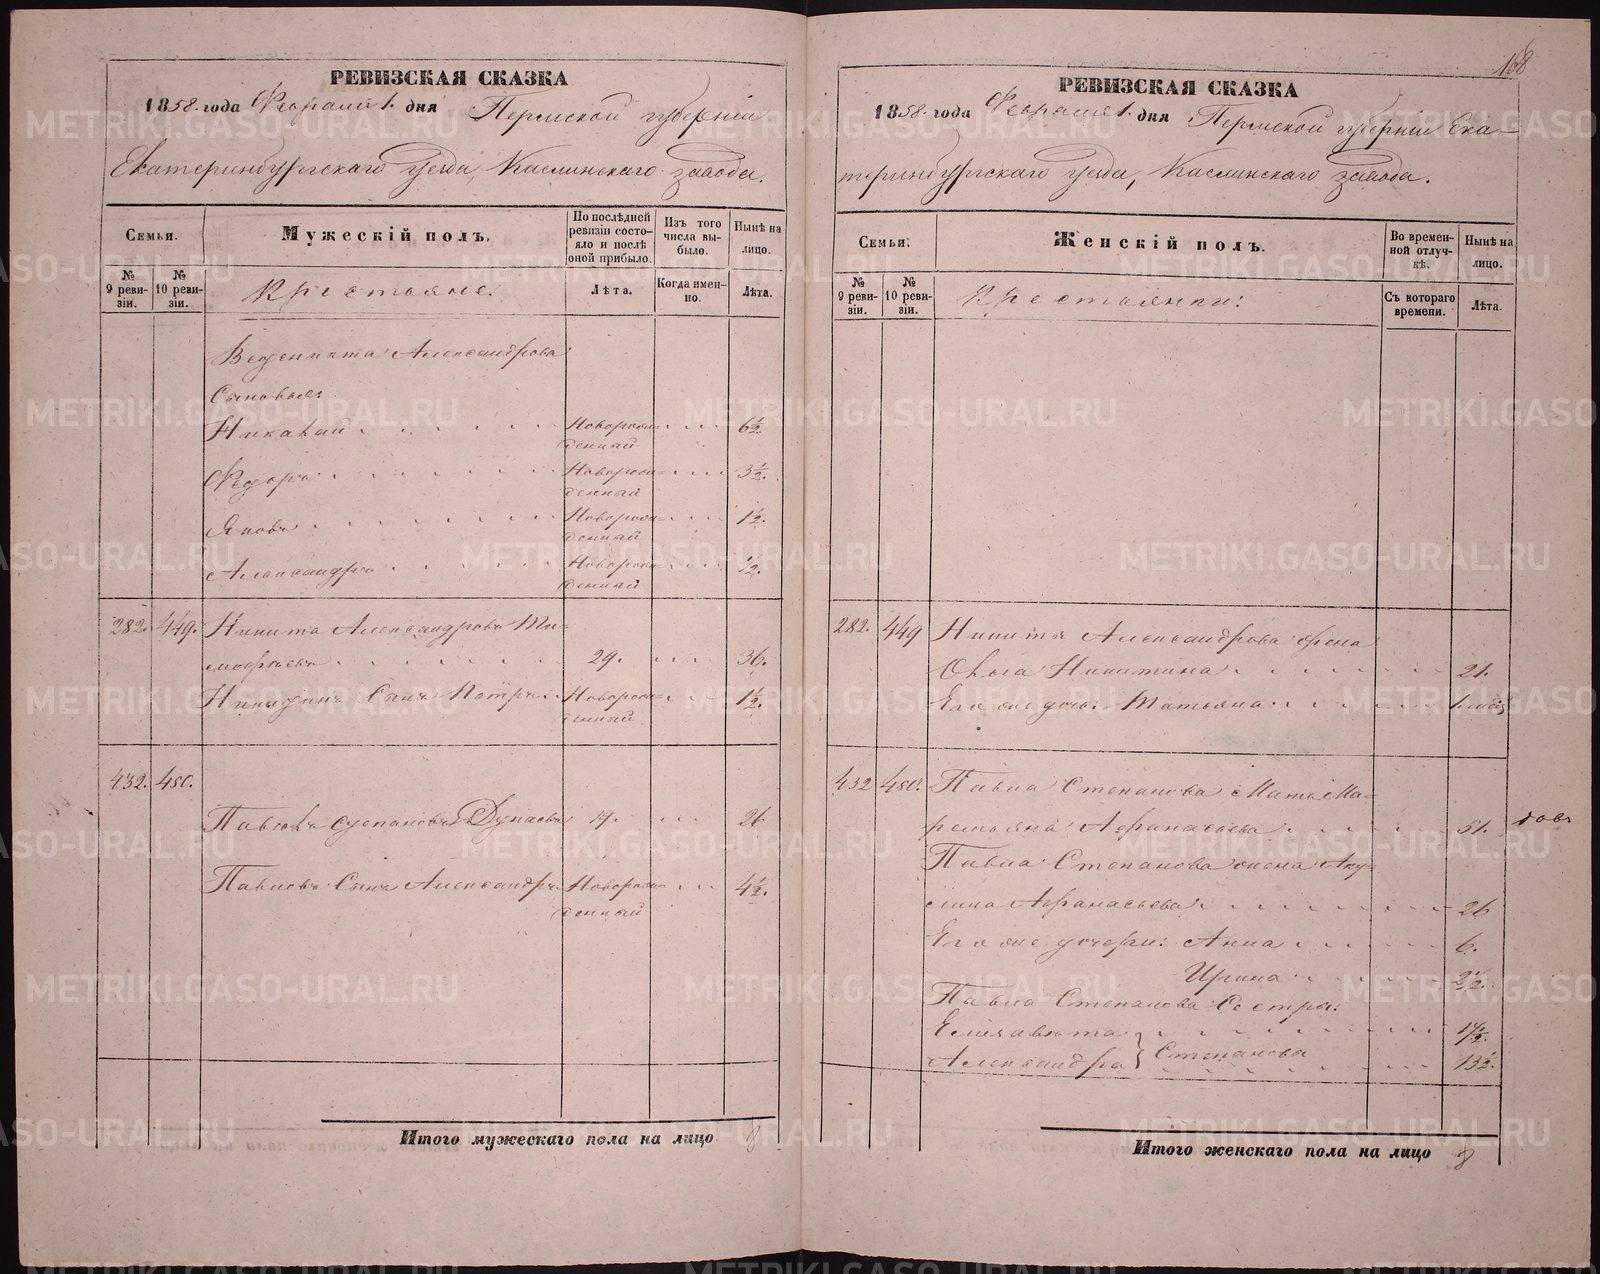 РЕВИЗСКАЯ СКАЗКА
1858. года Февраля 1. дня Пермской губернии
Екатеринбургскаго уезда, Каслинскаго завода.
Семьи.
Мужескій полъ.
По послѣдней ревизіи состояло и послѣ оной прибыло.
Изъ того числа выбыло.
Нынѣ на лицо.
№ 9 ревизіи.
№ 10 ревизіи.
Крестьяне.
Лѣта.
Когда именно.
Лѣта.
Веденикта Александрова
Сыновья:
Николай Новорожденный 6½.
Федоръ Новорожденный 3½.
Яковъ Новорожденный 1½.
Александръ Новорожденный ½.
282. 449. Никита Александровъ Тимофеевъ 29. 36.
Никитинъ Сынъ Петръ Новорожденный 1½.
432. 450.
Павелъ Степановъ Дунаевъ 19. 26
Павловъ Сынъ Александръ Новорожденный 4½.
Итого мужескаго пола на лицо 8
168
РЕВИЗСКАЯ СКАЗКА
1858. года Февраля 1. дня Пермской губернии Ека-
теринбургскаго уезда, Каслинскаго завода.
Семьи.
Женскій полъ.
Во временной отлучкѣ.
Нынѣ на лицо.
№ 9 ревизіи.
№ 10 ревизіи.
Крестьянки:
Съ котораго времени.
Лѣта.
282. 449 Никиты Александрова жена
Ольга Никитина 21.
Его же дочь: Татьяна 1.
432 450. Павла Степанова Мать Ма-
ремьяна Афанасьева 51.
Павла Степанова жена Аку-
лина Афанасьева 26
Его же дочери: Анна 6.
Ирина 2½.
Павла Степанова Сестры:
Елизавета
Александра } Степанова 13½.
Итого женскаго пола на лицо 8
METRIKI.GASO-URAL.RU